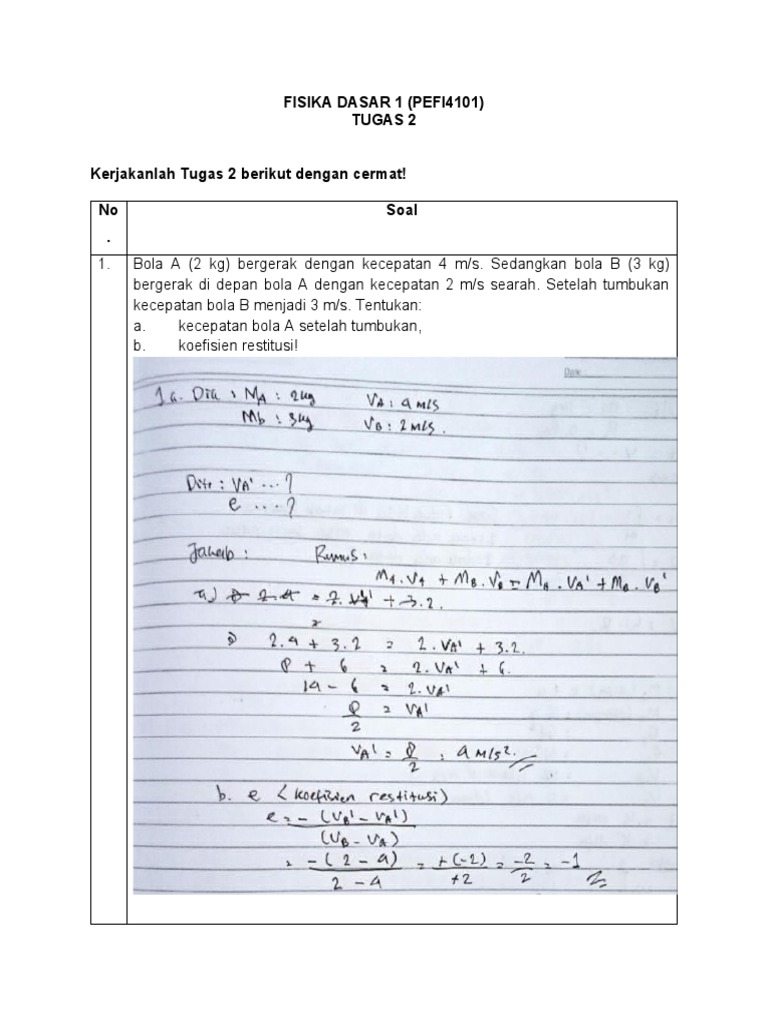 FISIKA DASAR 1 (PEFI4101)
TUGAS 2
Kerjakanlah Tugas 2 berikut dengan cermat!
No
.
Soal
1.
Bola A (2 kg) bergerak dengan kecepatan 4 m/s. Sedangkan bola B (3 kg)
bergerak di depan bola A dengan kecepatan 2 m/s searah. Setelah tumbukan
kecepatan bola B menjadi 3 m/s. Tentukan:
a. kecepatan bola A setelah tumbukan,
b. koefisien restitusi!
1a. Dik : MA : 2kg VA : 4 m/s
Mb : 3kg VB : 2 m/s.
Dit : VA' ... ?
e ... ?
Jawab : Rumus :
MA . VA + MB . VB = MA . VA' + MB . VB'
a)
2.4 + 3.2 = 2. VA' + 3.2.
8 + 6 = 2. VA' + 6.
14 - 6 = 2. VA'
8/2 = VA'
VA' = 8/2 : 4 m/s².
b. e (koefisien restitusi)
e = - (VB' - VA')
(VB - VA)
= -(2 - 4) = +(-2) = -2 = -1
2 - 4 +2 2